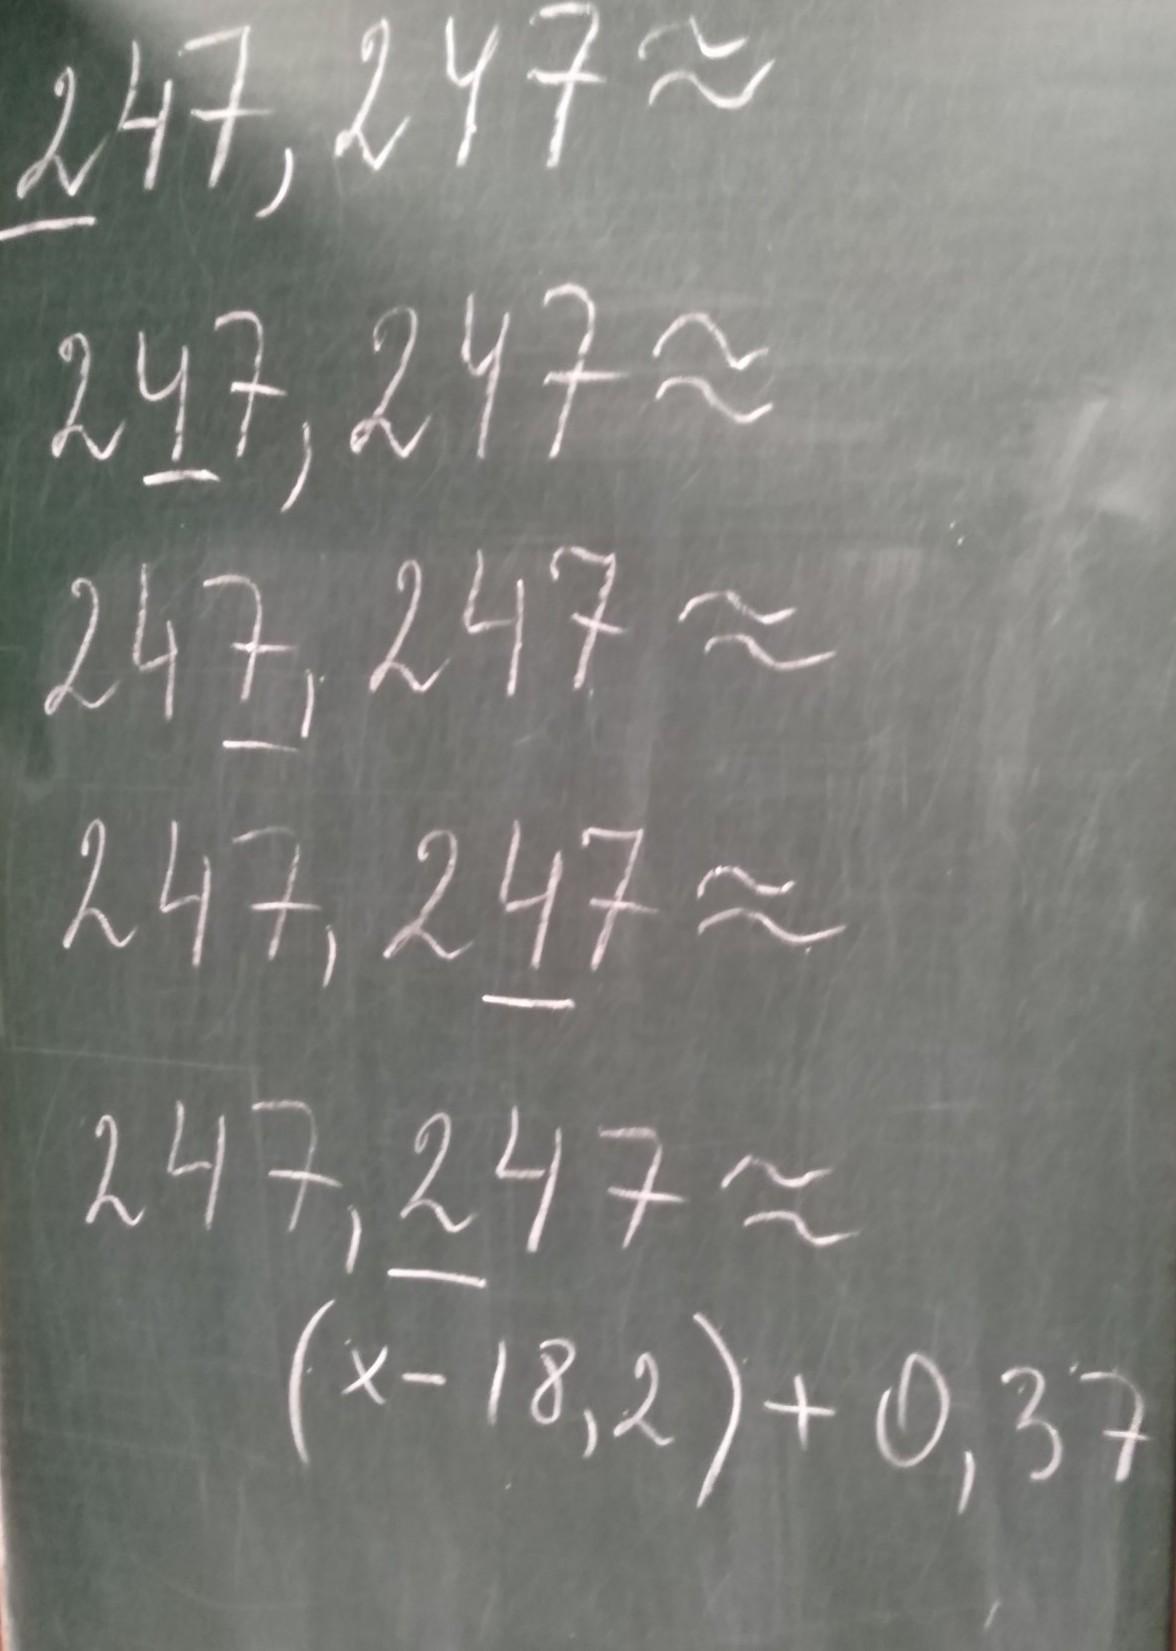 247,247≈
247,247≈
247,247≈
247,247≈
247,247≈
(x-18,2)+0,37